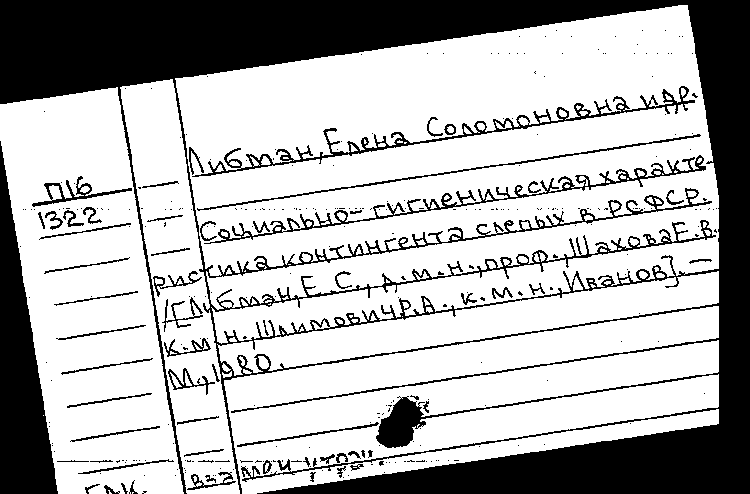 Либман, Елена Соломоновна и др.
П16
1322
Социально-гигиеническая характе-
ристика контингента слепых в РСФСР.
/[Либман, Е.С., д.м.н., проф., Шахова Е.В.
к.м.н., Шлимович Р.А., к.м.н., Иванов]. —
М., 1980.